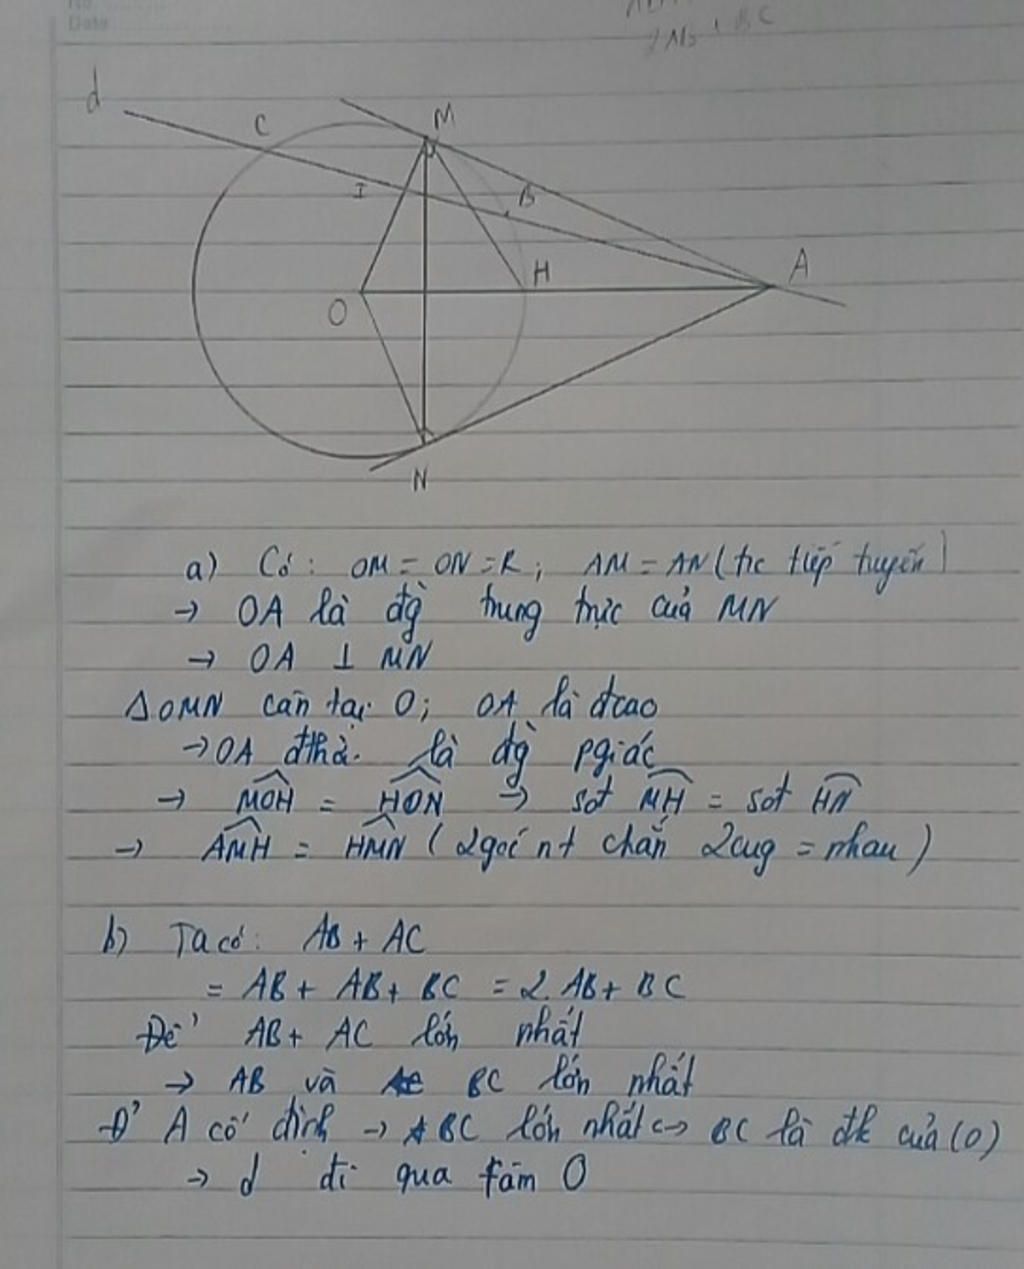 No
Date
2AB + BC
d
C
M
I
B
H
A
O
N
a) Có: OM = ON = R; AM = AN (tc tiếp tuyến)
→ OA là đg̀ trung trực của MN
→ OA ⊥ MN
Δ OMN cân tại O; OA là đcao
→ OA đthờ. là đg̀ pgiác
→ MOH = HON → sđt MH = sđt HN
→ AMH = HMN (2góc nt chắn 2cug = nhau)
b) Ta có: AB + AC
= AB + AB + BC = 2. AB + BC
Để AB + AC lớn nhất
→ AB và BC lớn nhất
Đ' A cố định → BC lớn nhất ↔ BC là đk của (O)
→ d đi qua tâm O